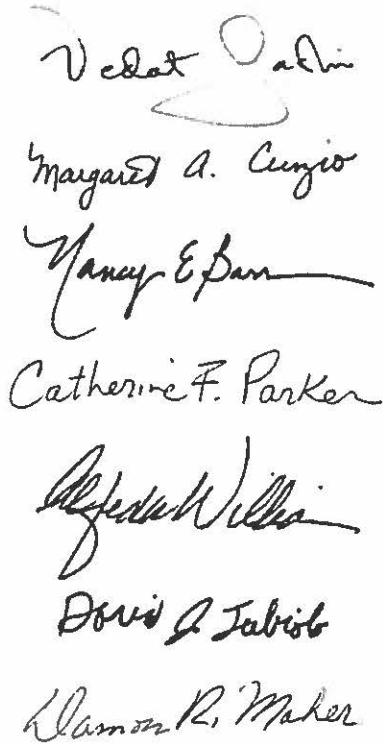 Vedat
Margaret A. Cunzio
Nancy E Barr
Catherine F. Parker
Alfreda Willia
Doris J
Damon R. Maher